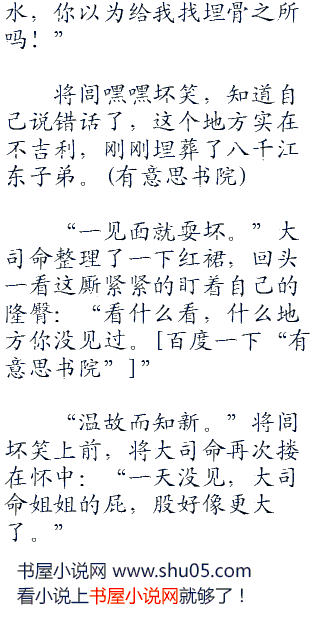 水，你以为给我找埋骨之所
吗！”
将闾嘿嘿坏笑，知道自
己说错话了，这个地方实在
不吉利，刚刚埋葬了八千江
东子弟。(有意思书院)
“一见面就耍坏。”大
司命整理了一下红裙，回头
一看这厮紧紧的盯着自己的
隆臀：“看什么看，什么地
方你没见过。[百度一下“有
意思书院”]”
“温故而知新。”将闾
坏笑上前，将大司命再次搂
在怀中：“一天没见，大司
命姐姐的屁，股好像更大
了。”
书屋小说网 www.shu05.com
看小说上书屋小说网就够了！